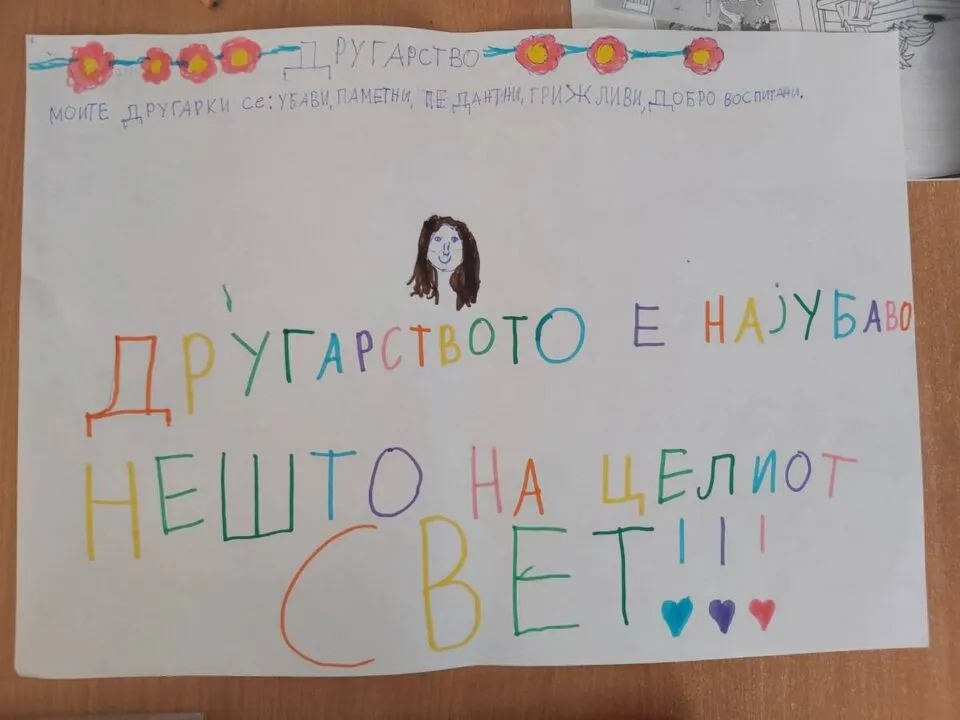 ДРУГАРСТВО
МОИТЕ ДРУГАРКИ се: УБАВИ, ПАМЕТНИ, ПЕДАНТНИ, ГРИЖЛИВИ, ДОБРО ВОСПИТАНИ.
ДРУГАРСТВОТО Е НАЈУБАВО
НЕШТО НА ЦЕЛИОТ
СВЕТ!!!